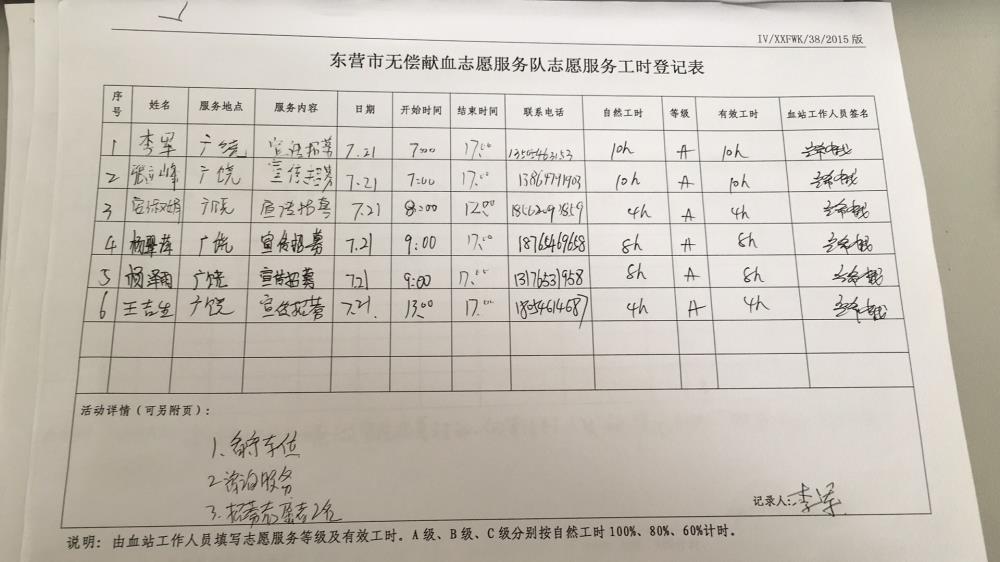 IV/XXFWK/38/2015版
东营市无偿献血志愿服务队志愿服务工时登记表
序号 姓名 服务地点 服务内容 日期 开始时间 结束时间 联系电话 自然工时 等级 有效工时 血站工作人员签名
1 李军 广饶 宣传招募 7.21 7:00 17:00 13505463153 10h A 10h
2 广饶 宣传招募 7.21 7:00 17:00 10h A 10h
3 广饶 宣传招募 7.21 8:00 12:00 4h A 4h
4 广饶 宣传招募 7.21 9:00 17:00 18765469658 8h A 8h
5 杨泽雨 广饶 宣传招募 7.21 9:00 17:00 13176531958 8h A 8h
6 王吉生 广饶 宣传招募 7.21. 13:00 17:00 18054614687 4h A 4h
活动详情（可另附页）：
1.备守车位
2.咨询服务
3.招募志愿者2名
记录人：李军
说明：由血站工作人员填写志愿服务等级及有效工时。A级、B级、C级分别按自然工时100%、80%、60%计时。